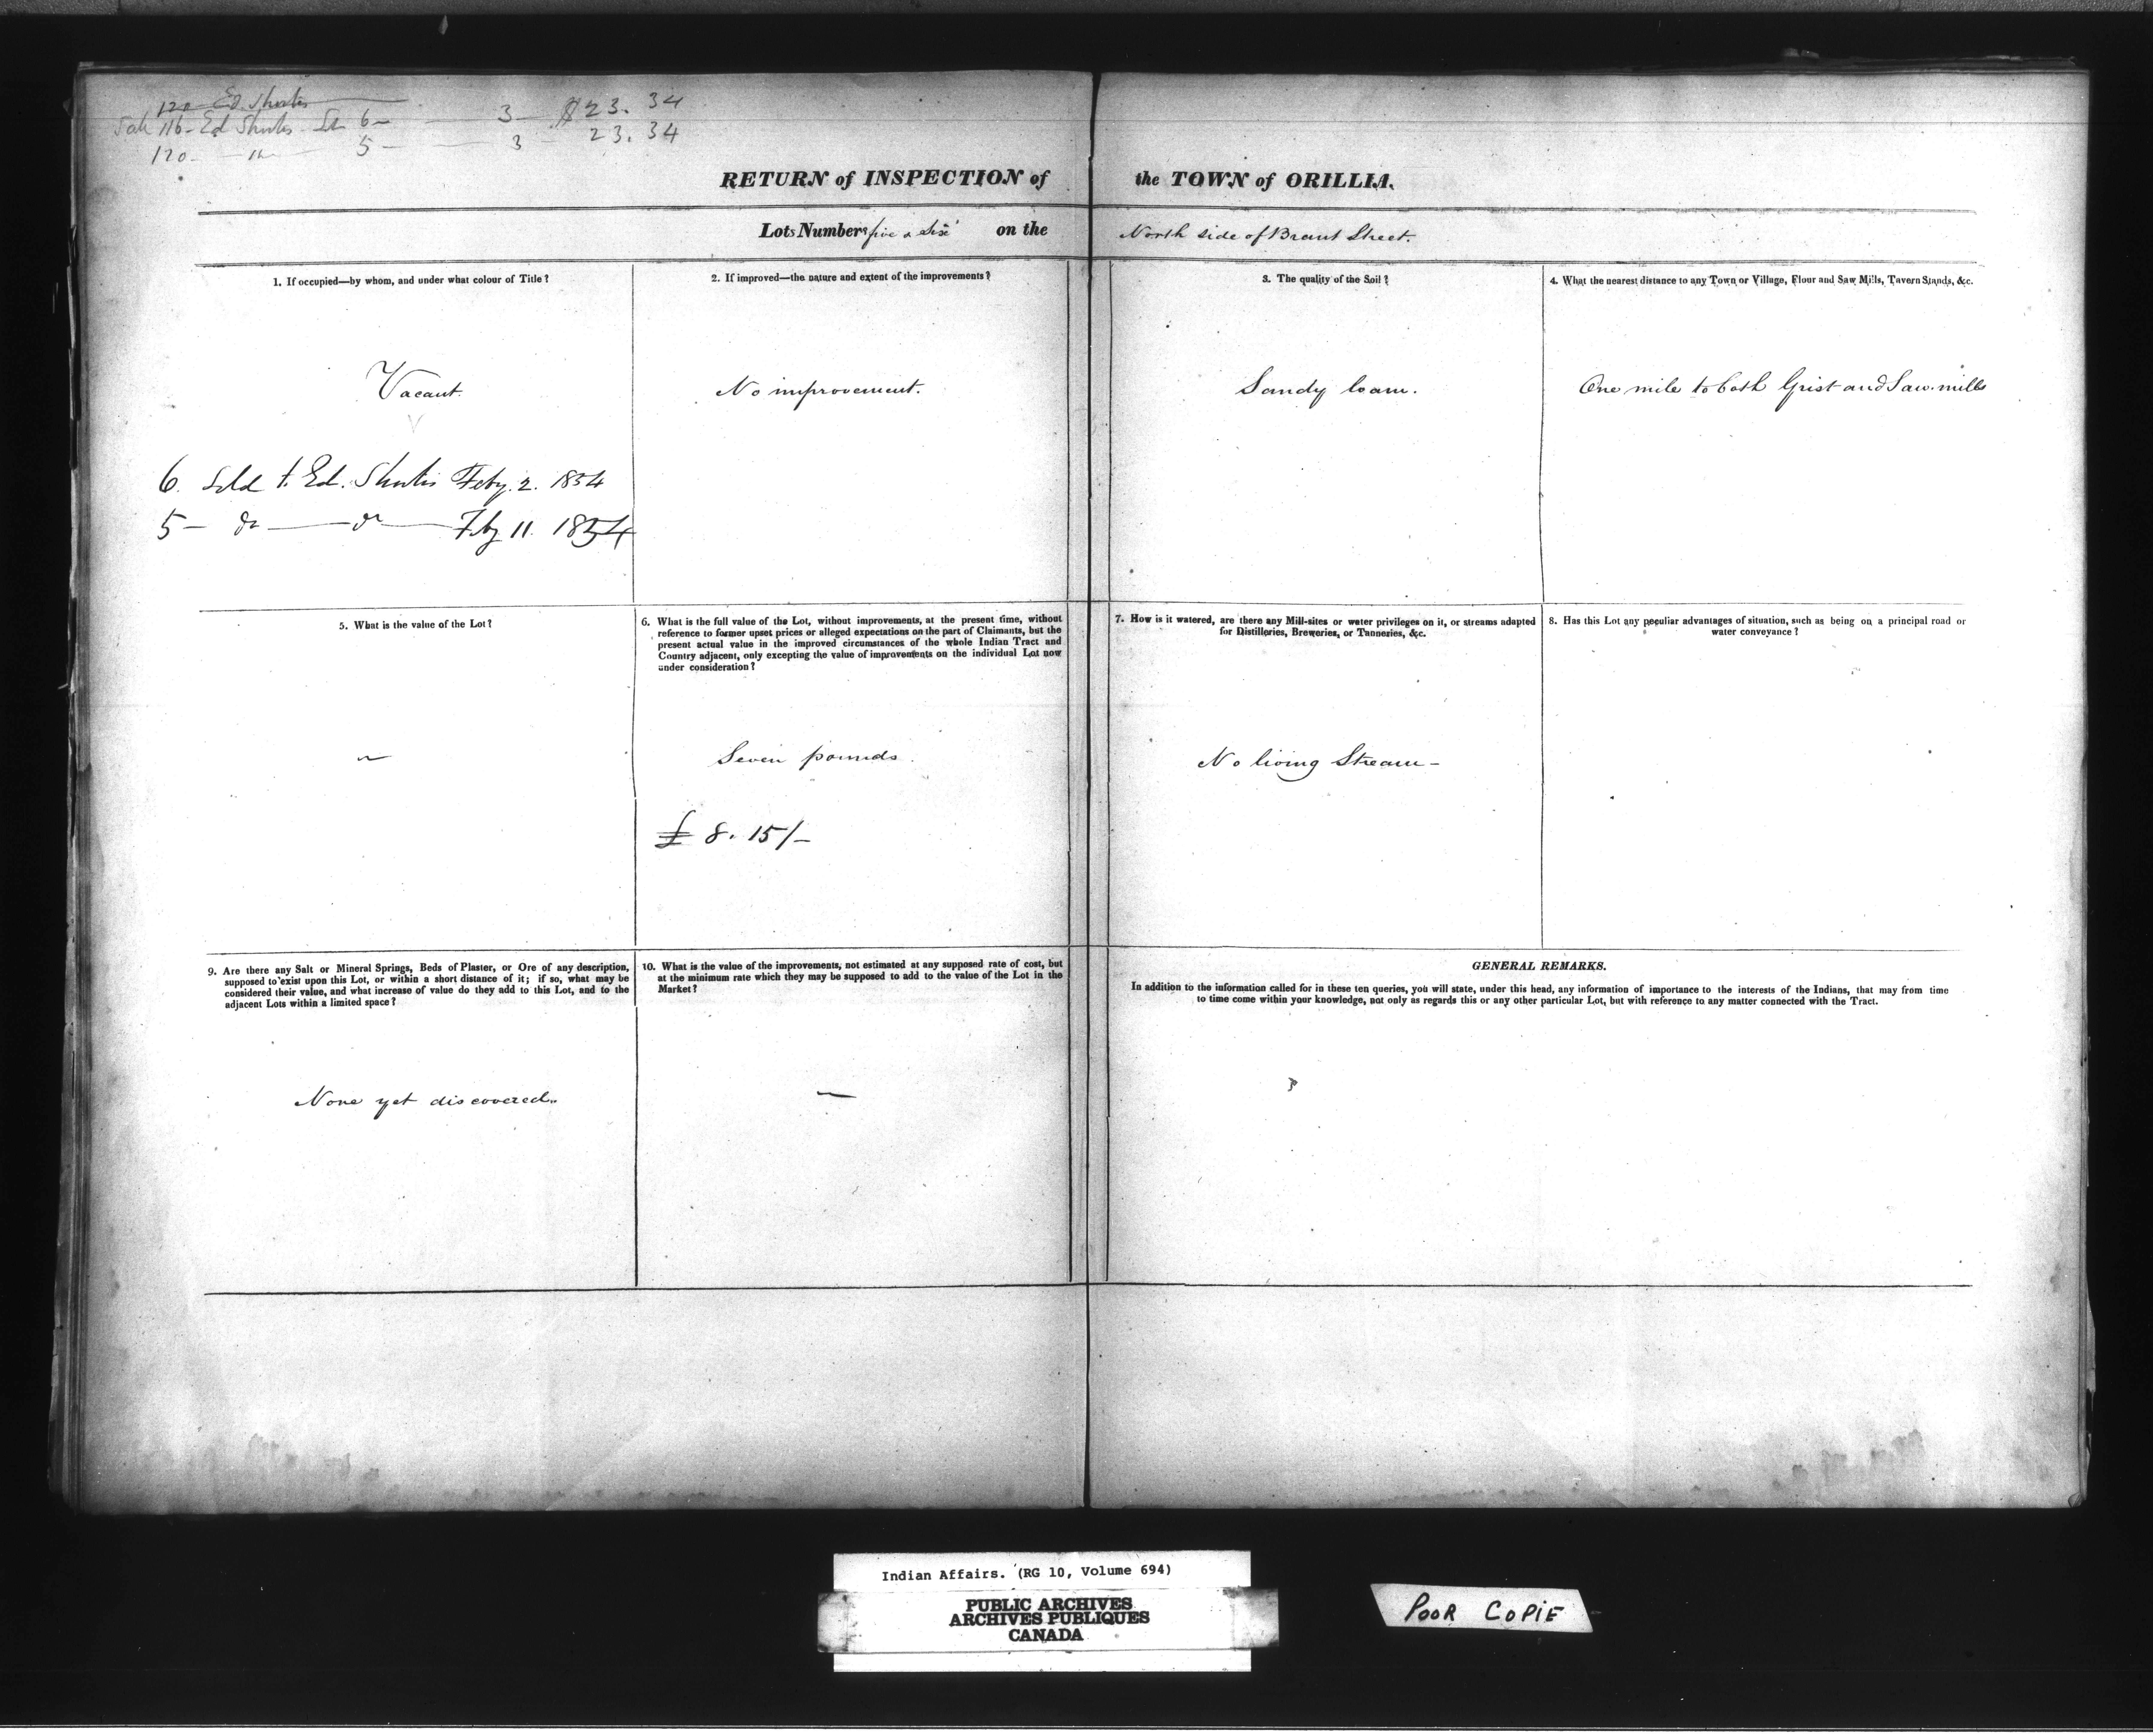 120 Ed. Shortis
Sale 116 - Ed Shortis - Lot 6 - 3 - $23. 34
120 - " - 5 - 3 - 23. 34
RETURN of INSPECTION of the TOWN of ORILLIA.
Lots Numbers five & Six on the North side of Brant Street.
1. If occupied—by whom, and under what colour of Title?
Vacant.
6. Sold t. Ed. Shortis Feby. 2. 1854
5 — do — do — Feby 11. 1854
2. If improved—the nature and extent of the improvements?
No improvement.
3. The quality of the Soil?
Sandy loam.
4. What the nearest distance to any Town or Village, Flour and Saw Mills, Tavern Stands, &c.
One mile to both Grist and Saw mills
5. What is the value of the Lot?
6. What is the full value of the Lot, without improvements, at the present time, without
reference to former upset prices or alleged expectations on the part of Claimants, but the
present actual value in the improved circumstances of the whole Indian Tract and
Country adjacent, only excepting the value of improvements on the individual Lot now
under consideration?
Seven pounds.
£ 8. 15/-
7. How is it watered, are there any Mill-sites or water privileges on it, or streams adapted
for Distilleries, Breweries, or Tanneries, &c.
No living Stream -
8. Has this Lot any peculiar advantages of situation, such as being on a principal road or
water conveyance?
9. Are there any Salt or Mineral Springs, Beds of Plaster, or Ore of any description,
supposed to exist upon this Lot, or within a short distance of it; if so, what may be
considered their value, and what increase of value do they add to this Lot, and to the
adjacent Lots within a limited space?
None yet discovered.
10. What is the value of the improvements, not estimated at any supposed rate of cost, but
at the minimum rate which they may be supposed to add to the value of the Lot in the
Market?
GENERAL REMARKS.
In addition to the information called for in these ten queries, you will state, under this head, any information of importance to the interests of the Indians, that may from time
to time come within your knowledge, not only as regards this or any other particular Lot, but with reference to any matter connected with the Tract.
Indian Affairs. (RG 10, Volume 694)
PUBLIC ARCHIVES
ARCHIVES PUBLIQUES
CANADA
POOR COPIE